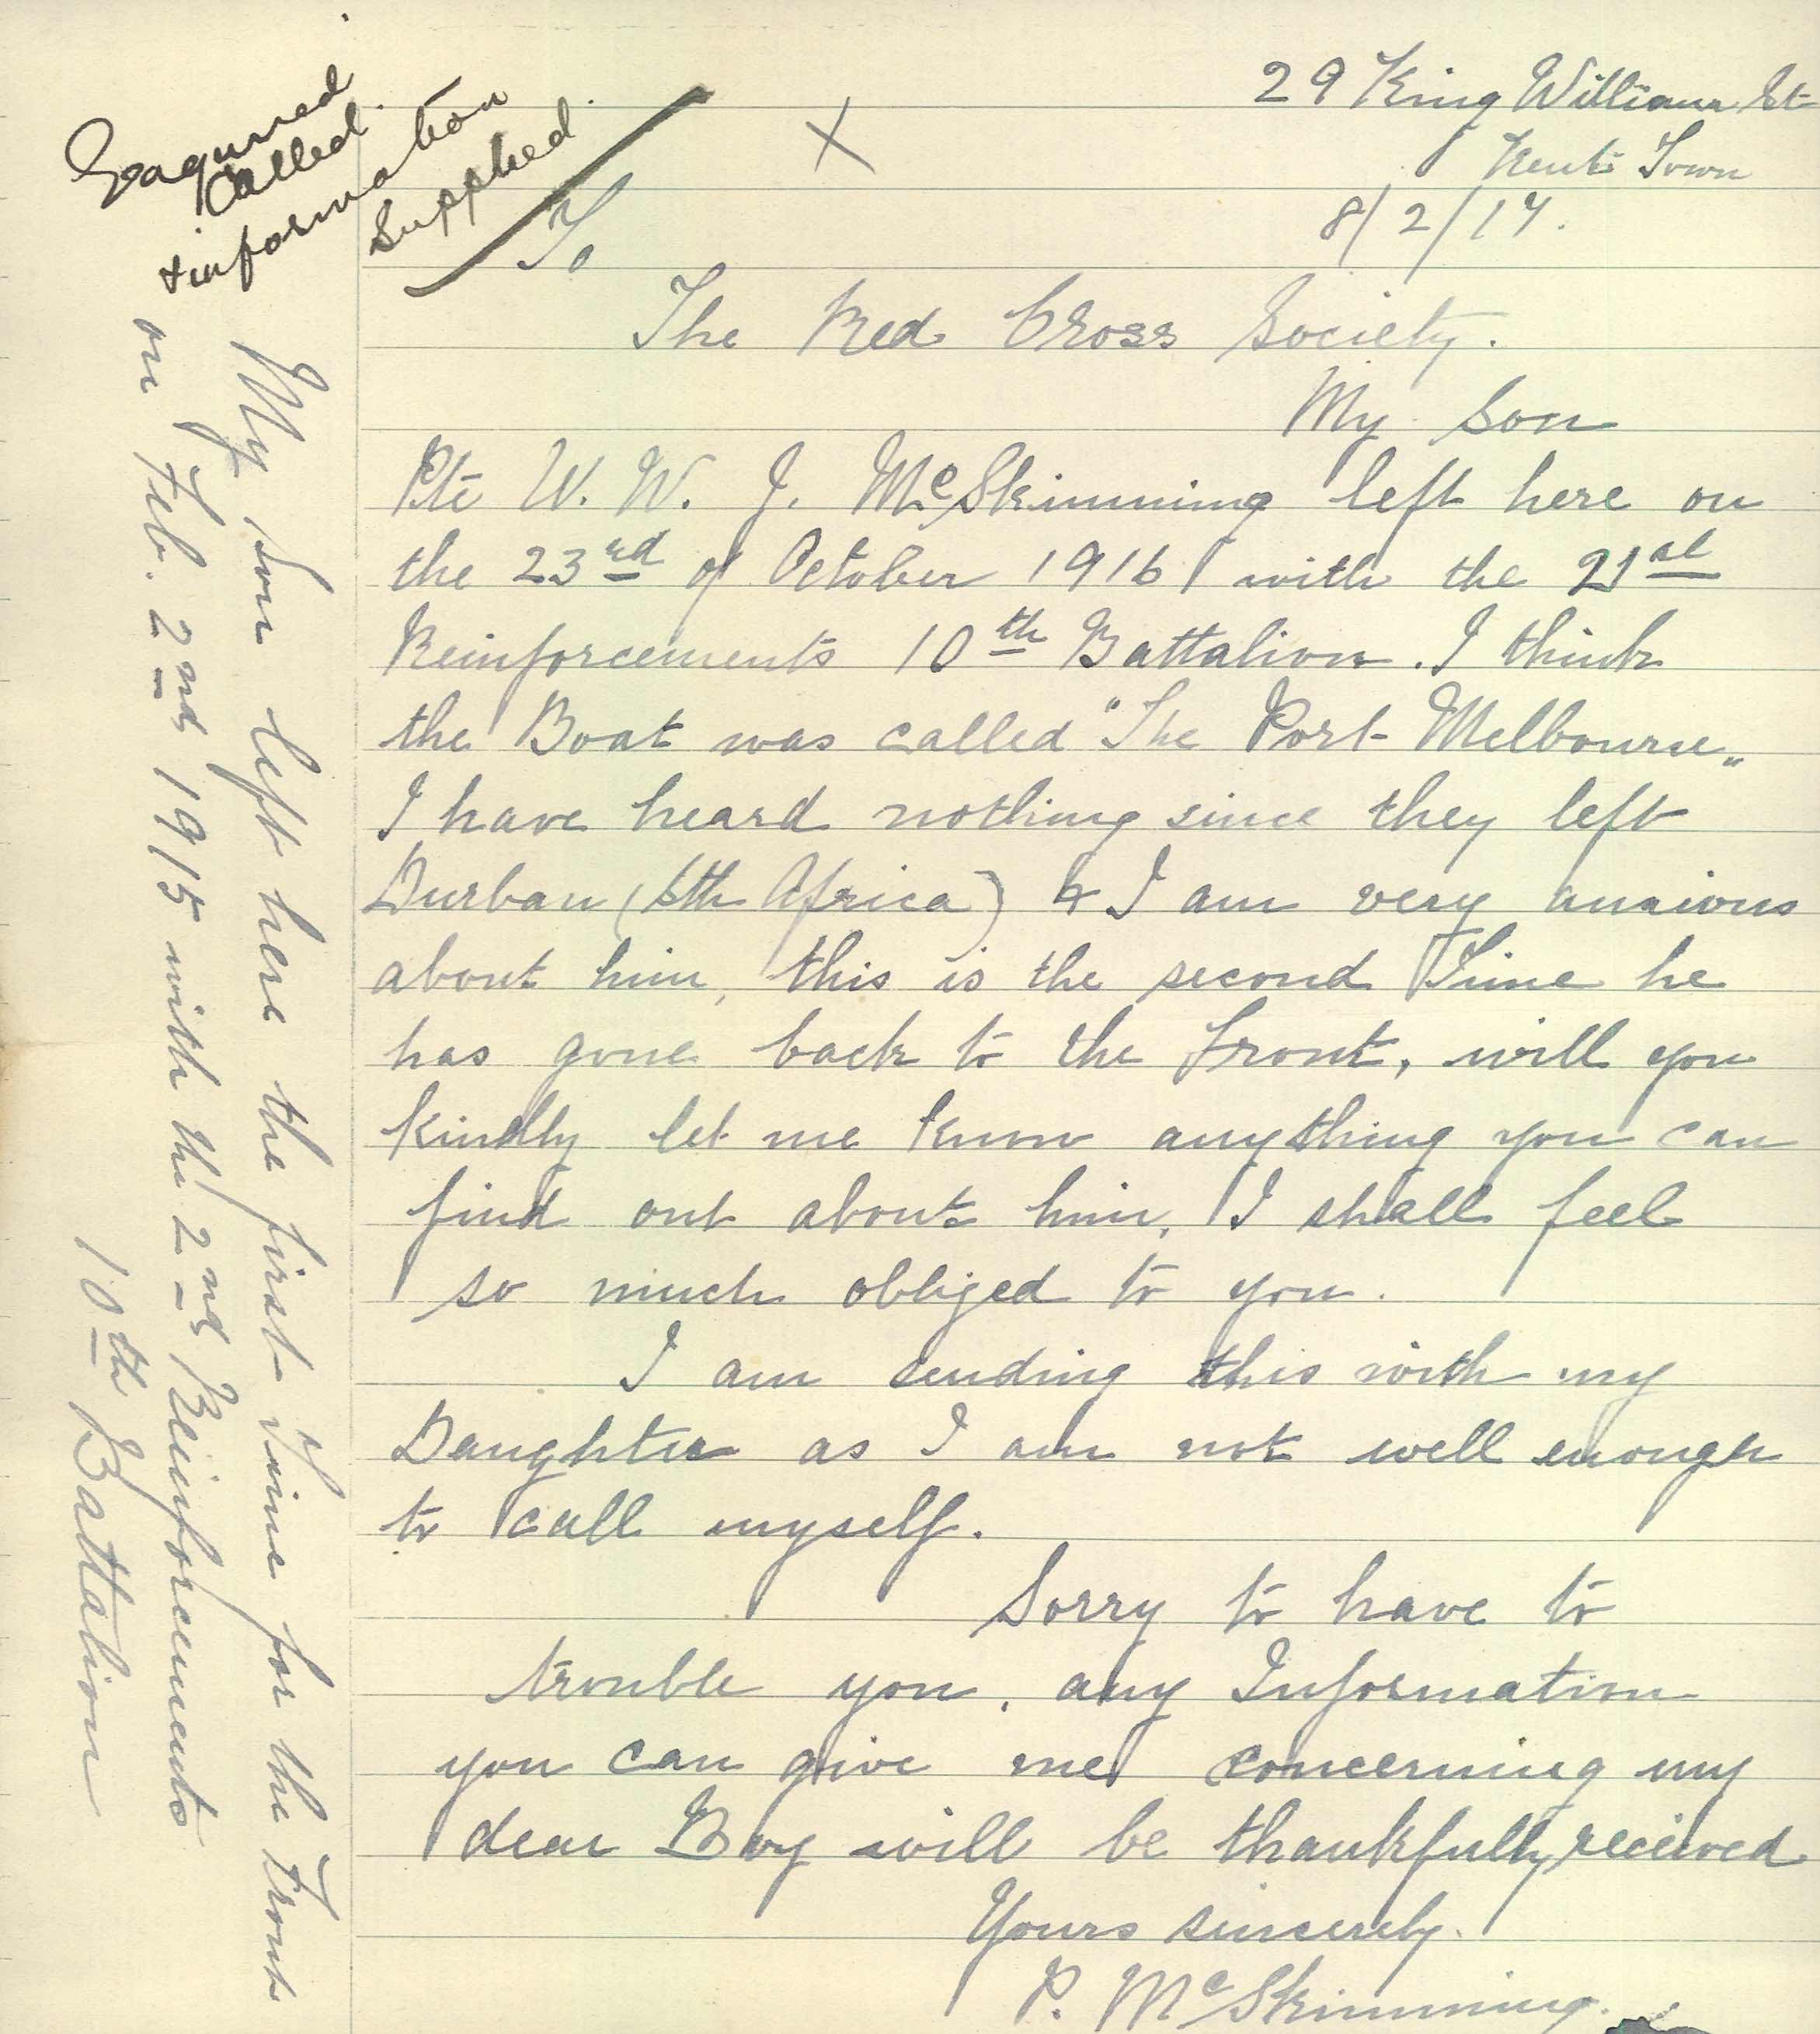 29 King William St
Kent Town
8/2/17.
Enquired
Called.
& information
Supplied.
X
To
The Red Cross Society.
My Son
Pte W. W. J. McSkimming left here on
the 23rd of October 1916 with the 21st
Reinforcements 10th Battalion. I think
the Boat was called "The Port Melbourne„
I have heard nothing since they left
Durban (Sth Africa) & I am very anxious
about him, this is the second Time he
has gone back to the Front, will you
kindly let me know anything you can
find out about him, I shall feel
so much obliged to you.
I am sending this with my
Daughter as I am not well enough
to call myself.
Sorry to have to
trouble you, any Information
you can give me concerning my
dear Boy will be thankfully received
Yours sincerely.
P. McSkimming.
My Son left here the first Time for the Front
on Feb. 2nd 1915 with the 2nd Reinforcements
10th Battalion